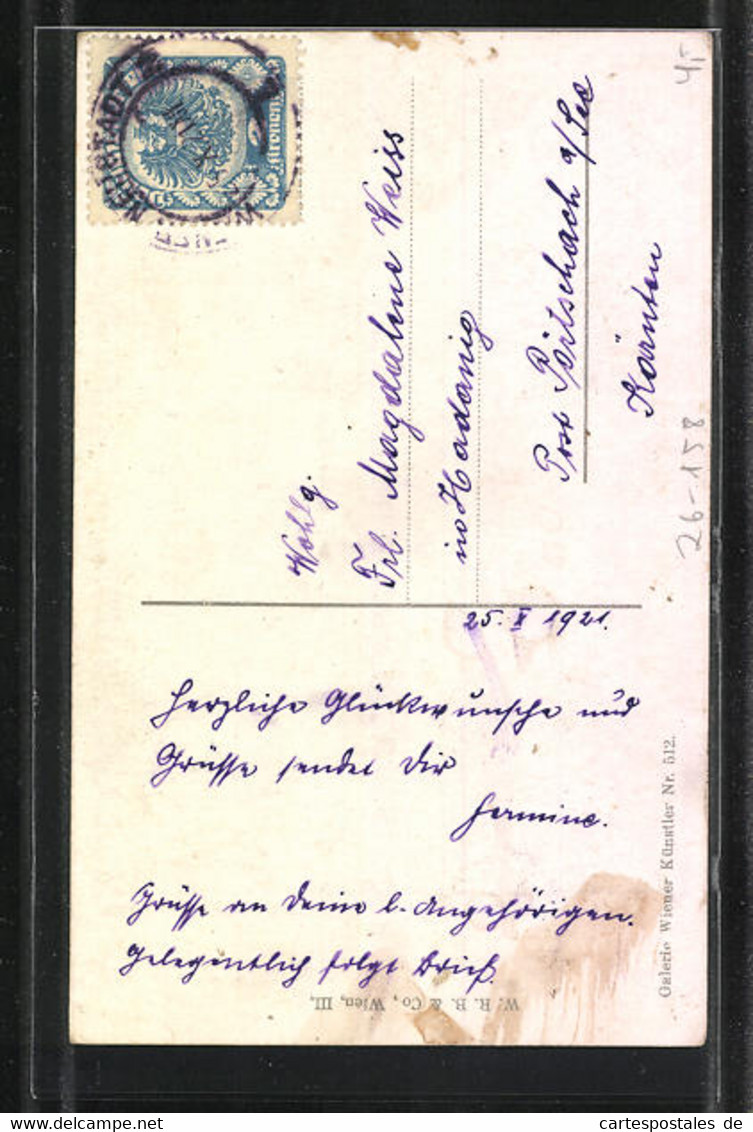 4,-
2 Kronen
WIENER NEUSTADT
Wohlg.
Frl. Magdalene Weiss
in Hadanig
Post Pörtschach a/See
Kärnten
26-158
25. X 1921.
Herzliche Glückwünsche und
Grüsse sendet Dir
Hermine.
Grüsse an Deine l. Angehörigen.
Gelegentlich folgt Brief.
W. R. B. & Co, Wien, III,
Galerie Wiener Künstler Nr. 512.
cartespostales de